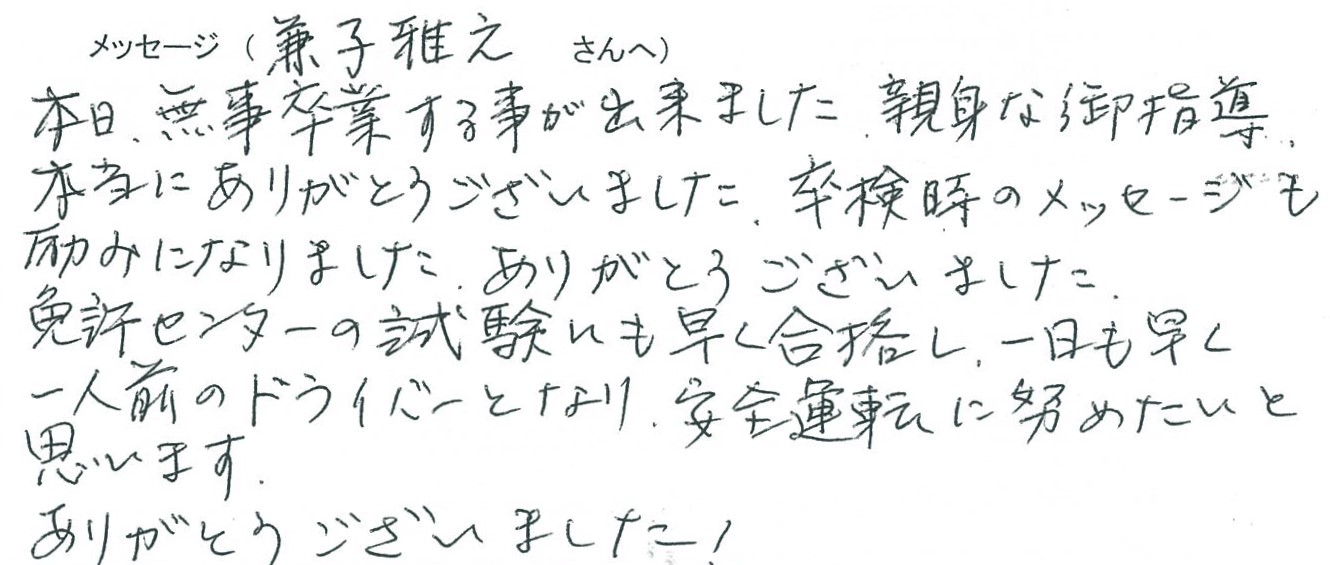 メッセージ（兼子雅之 さんへ）
本日、無事卒業する事が出来ました。親身な御指導、
本当にありがとうございました。卒検時のメッセージも
励みになりました。ありがとうございました。
免許センターの試験にも早く合格し、一日も早く
一人前のドライバーとなり、安全運転に努めたいと
思います。
ありがとうございました！